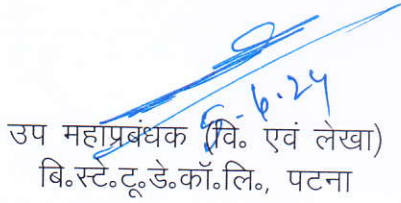 5-6-24
उप महाप्रबंधक (वि० एवं लेखा)
बि०स्टे०टू०डे०कॉ०लि०, पटना